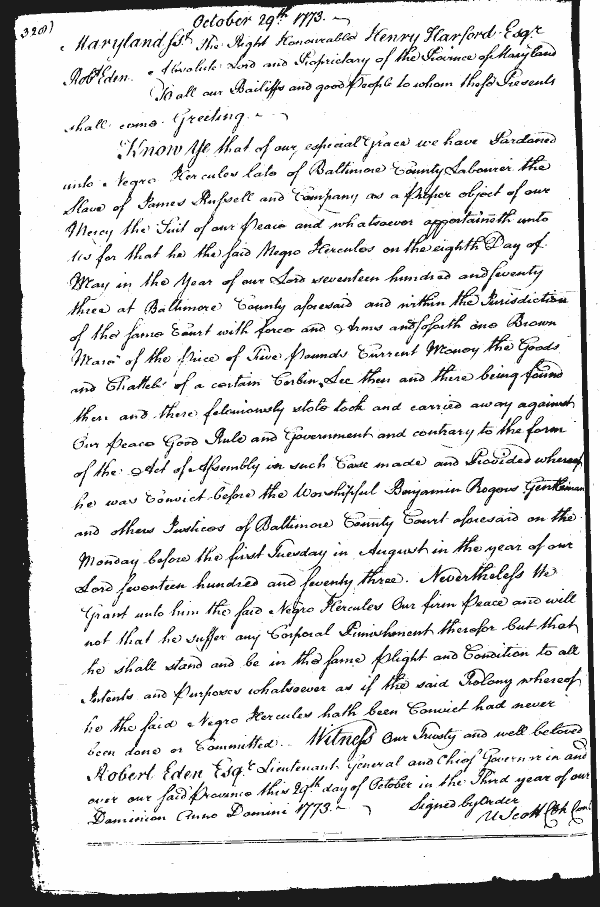 328)
October 29th 1773.
Maryland sst. The Right Honourable Henry Harford Esqr.
Robt. Eden. Absolute Lord and Propriatary of the Province of Maryland
To all our Bailiffs and good People to whom these Presents
shall come Greeting.
Know Ye that of our especial Grace we have Pardoned
unto Negro Hercules late of Baltimore County Labourer the
Slave of James Russell and Company as a proper object of our
Mercy the Suit of our Peace and whatsoever appertaineth unto
Us for that he the said Negro Hercules on the eighth Day of
May in the Year of our Lord seventeen hundred and seventy
three at Baltimore County aforesaid and within the Jurisdiction
of the same Court with force and Arms and so forth one Brown
Mare of the Price of Five Pounds Current Money the Goods
and Chattels of a certain Corbin Lee then and there being found
then and there feloniously stole took and carried away against
Our Peace Good Rule and Government and contrary to the form
of the Act of Assembly in such Case made and Provided whereof
he was Convict before the Worshipful Benjamin Rogers Gentleman
and others Justices of Baltimore County Court aforesaid on the
Monday before the first Tuesday in August in the year of our
Lord seventeen hundred and seventy three. Nevertheless We
Grant unto him the said Negro Hercules Our firm Peace and will
not that he suffer any Corporal Punishment therefor but that
he shall stand and be in the same Plight and Condition to all
Intents and Purposes whatsoever as if the said Felony whereof
he the said Negro Hercules hath been Convict had never
been done or Committed. Witness Our Trusty and well beloved
Robert Eden Esqr. Lieutenant General and Chief Governor in and
over our said Province this 29th day of October in the Third year of our
Dominion Anno Domini 1773.
Signed by Order
U Scott Clk Con.